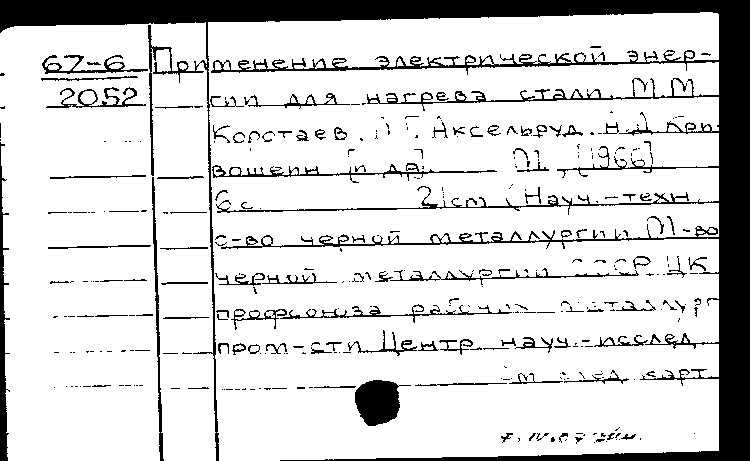 67-6 Применение электрической энер-
2052 гии для нагрева стали. М.М.
Коротаев, Л.Г. Аксельруд, Н.Д. Кри-
вошеин [и др]. М., [1966]
6 с. 21cm (Науч.-техн.
о-во черной металлургии М-во
черной металлургии СССР ЦК
профсоюза рабочих металлург
пром-сти Центр. науч.-исслед.
См след. карт.